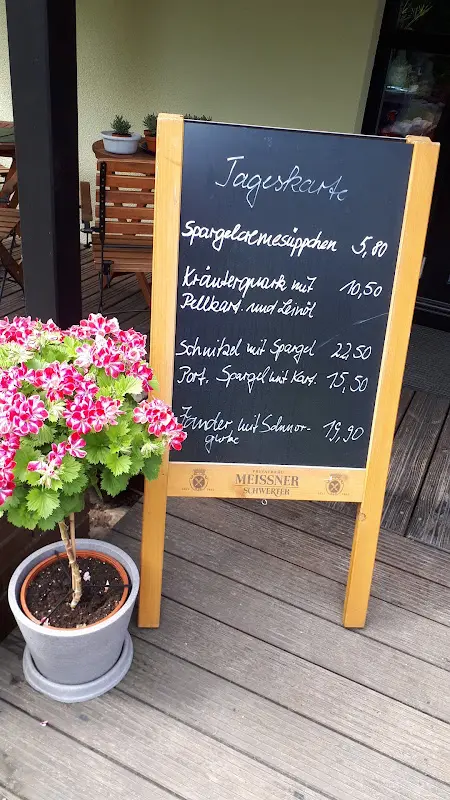 Tageskarte
Spargelcremesüppchen 5,80
Kräuterquark mit 10,50
Pellkart. und Leinöl
Schnitzel mit Spargel 22,50
Port. Spargel mit Kart. 15,50
Zander mit Schmor- 19,90
gurke
MEISSNER
SCHWERTER